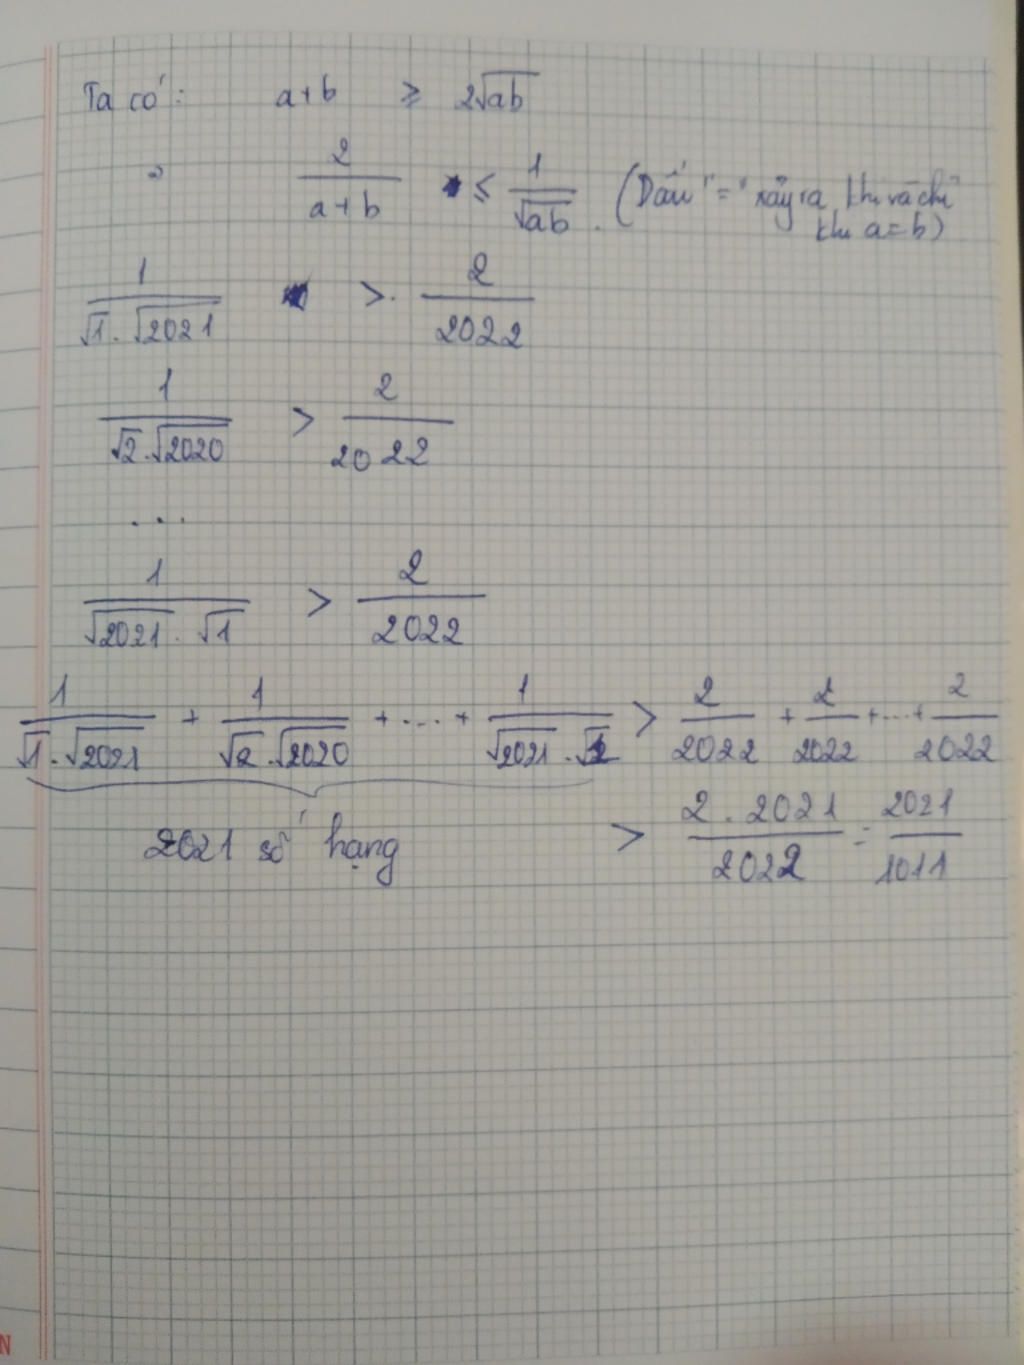 Ta có: a+b ≥ 2√ab
2/(a+b) ≤ 1/√ab. (Dấu "=" xảy ra khi và chỉ
khi a=b)
1/(√1.√2021) > 2/2022
1/(√2.√2020) > 2/2022
...
1/(√2021.√1) > 2/2022
1/(√1.√2021) + 1/(√2.√2020) + ... + 1/(√2021.√1) > 2/2022 + 2/2022 + ... + 2/2022
2021 số hạng > (2.2021)/2022 = 2021/1011
N